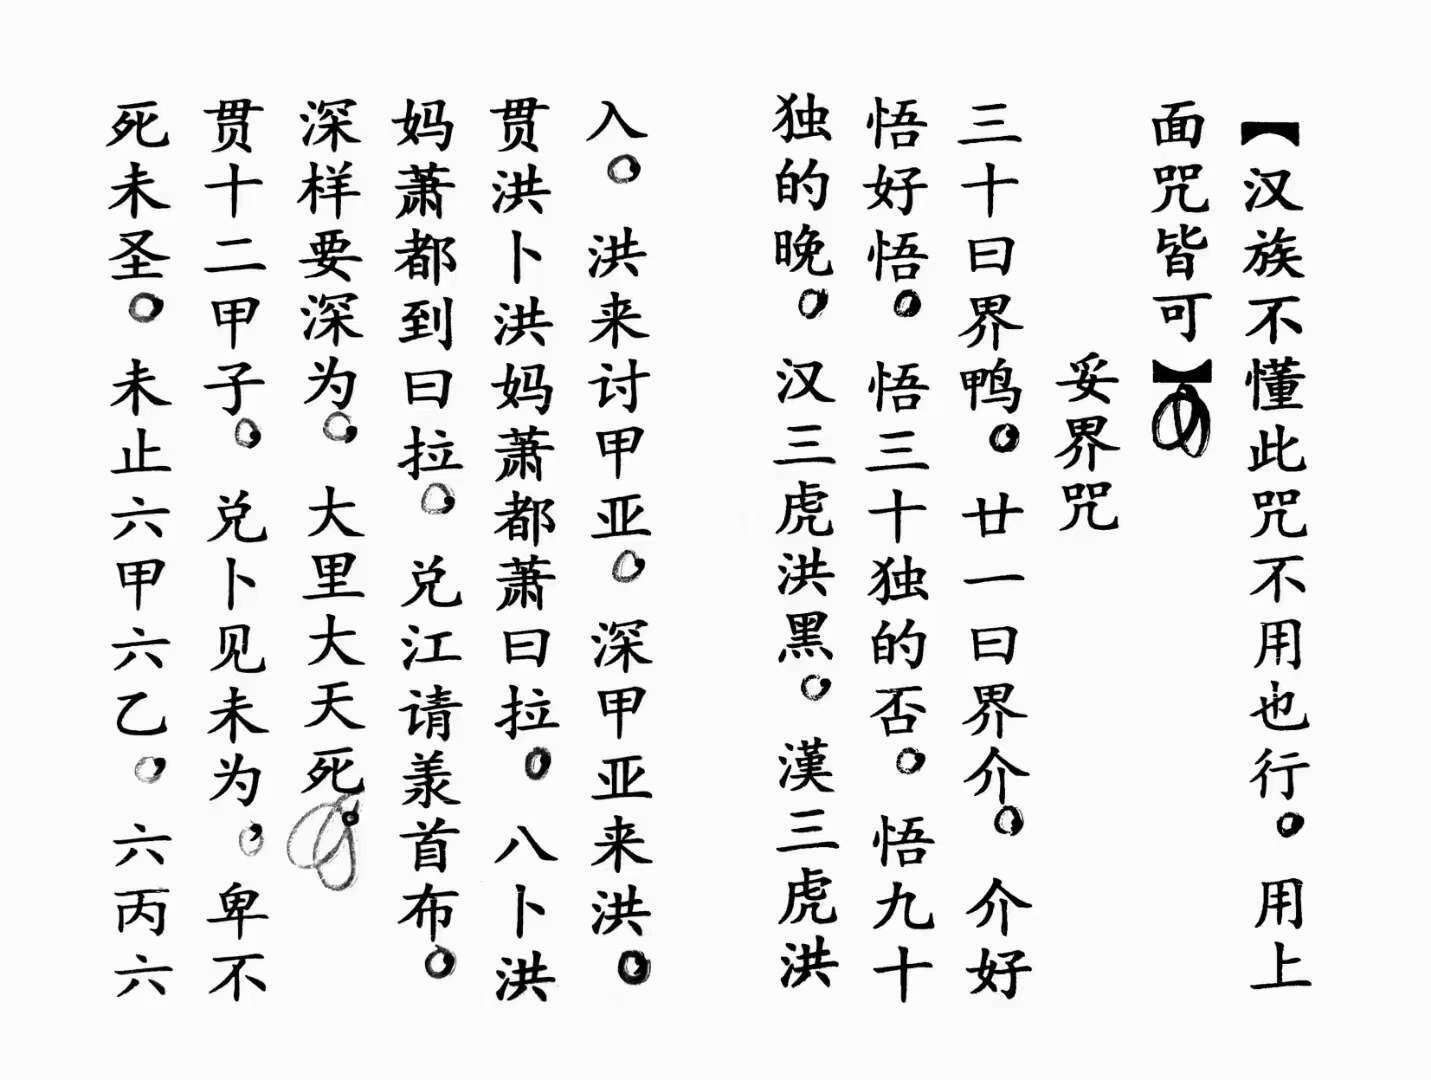 【汉族不懂此咒不用也行。用上
面咒皆可】
妥界咒
三十曰界鸭。廿一曰界介。介好
悟好悟。悟三十独的否。悟九十
独的晚。汉三虎洪黑。漢三虎洪
入。洪来讨甲亚。深甲亚来洪。
贯洪卜洪妈萧都萧曰拉。八卜洪
妈萧都到曰拉。兑江请羕首布。
深样要深为。大里大天死
贯十二甲子。兑卜见未为。卑不
死未圣。未止六甲六乙。六丙六